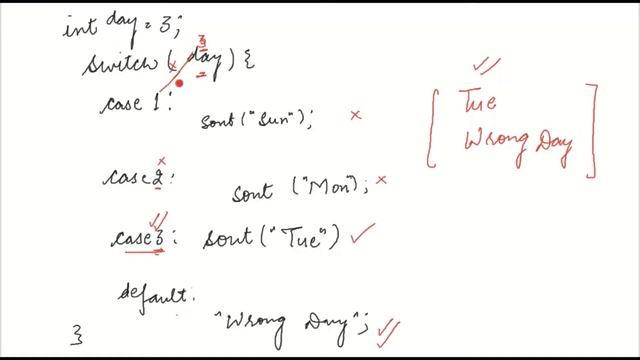 int day = 3;
switch (day) {
3
case 1:
sout("Sun");
case 2:
sout ("Mon");
case 3: sout("Tue")
default:
"Wrong Day";
}
[ Tue
Wrong Day ]